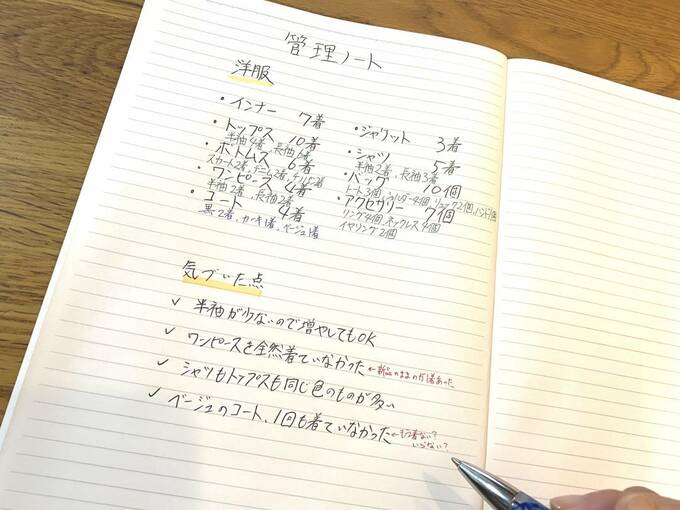 管理ノート
洋服
・インナー 7着
・トップス 10着
半袖4着、長袖6着
・ボトムス 6着
スカート2着、デニム2着、チノパン2着
・ワンピース 4着
半袖2着、長袖2着
・コート 4着
黒2着、カーキ1着、ベージュ1着
・ジャケット 3着
・シャツ 5着
半袖2着、長袖3着
・バッグ 10個
トート3個、ショルダー4個、リュック2個、ハンド1個
・アクセサリー 7個
リング4個、ネックレス4個
イヤリング2個
気づいた点
✓ 半袖が少ないので増やしてもOK
✓ ワンピースを全然着ていなかった ←新品のままのが1着あった
✓ シャツもトップスも同じ色のものが多い
✓ ベージュのコート、1回も着ていなかった ←もう着ない?
いらない?